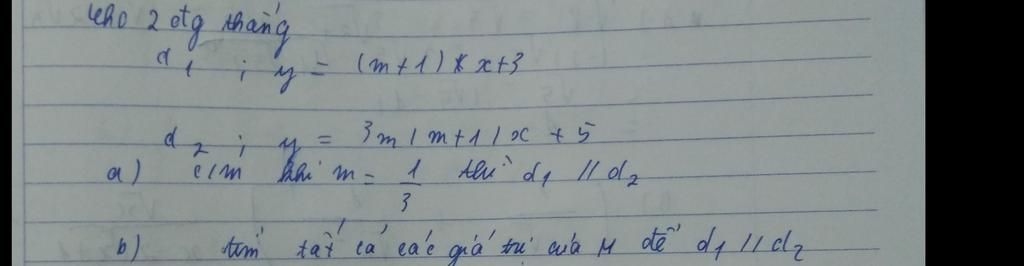 Cho 2 đtg thẳng
d1 ; y = (m+1) x + 3
d2 ; y = 3m(m+1)x + 5
a) c/m khi m = 1/3 thì d1 // d2
b) tìm tất cả các giá trị của M để d1 // d2